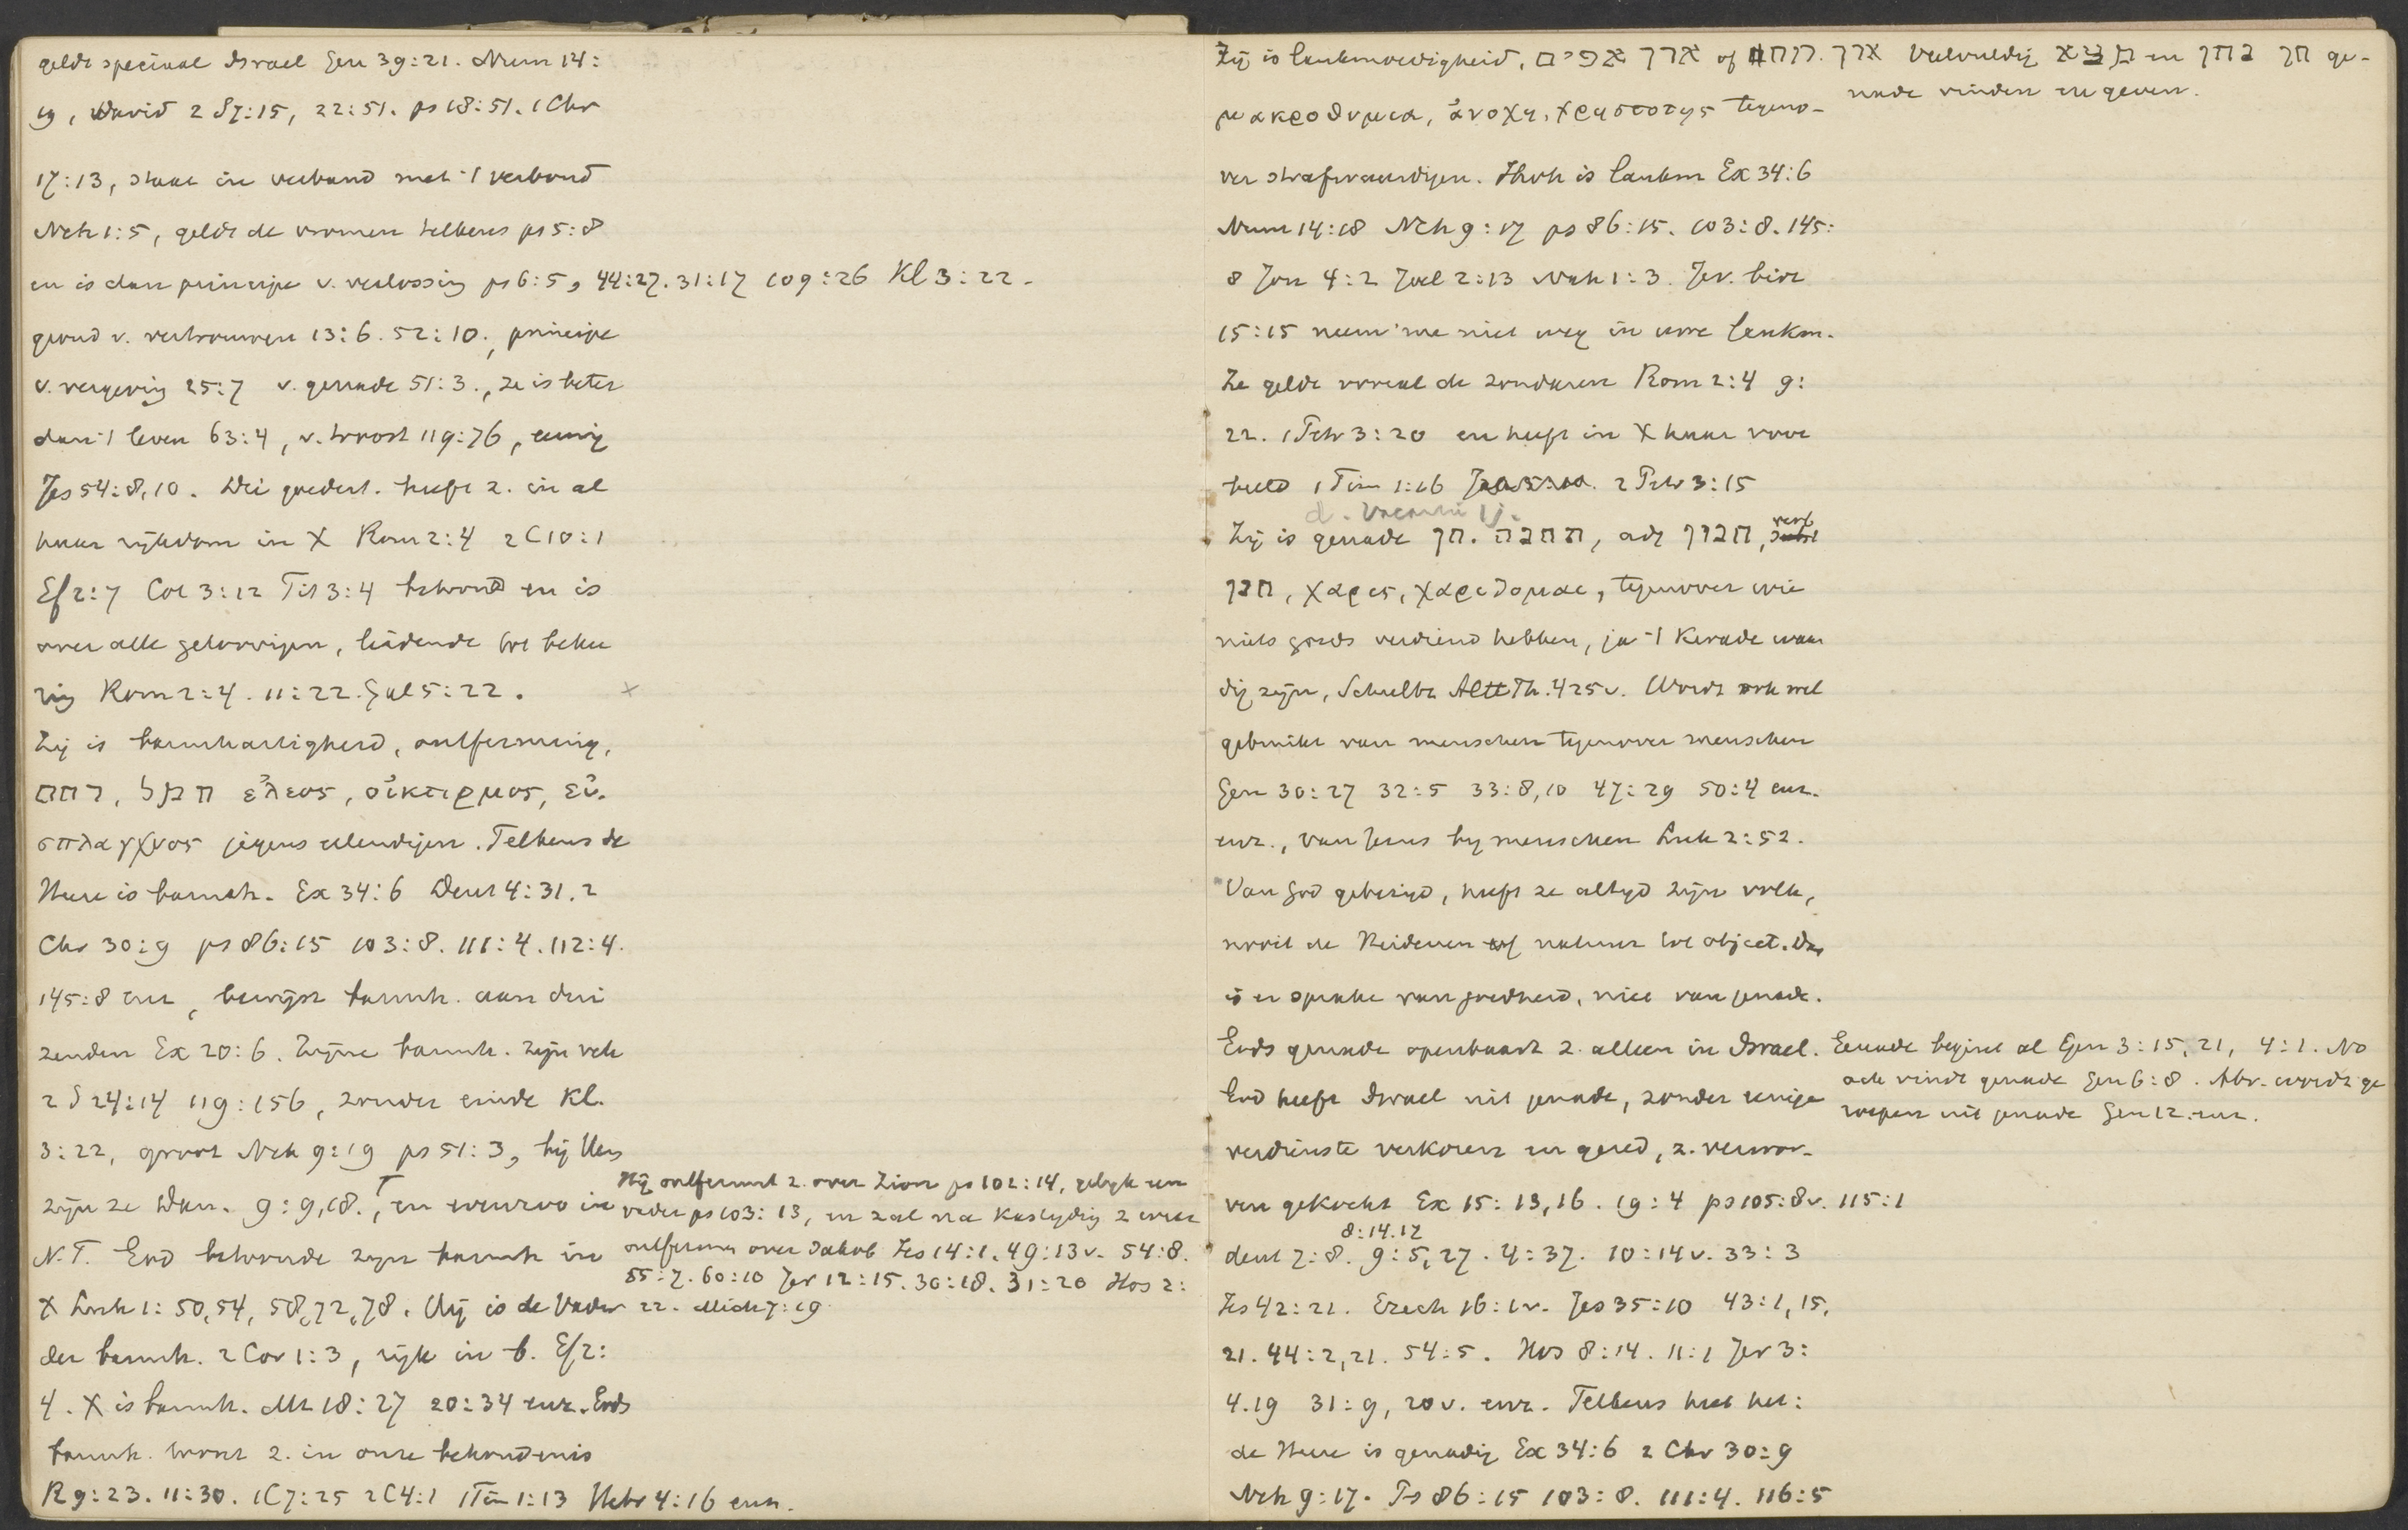 geldt speciaal Israel Gen 39:21. Num 14:
19, David 2 S 7:15, 22:51. ps 18:51. 1 Chr
17:13, staat in verband met 't verbond
Neh 1:5, geldt de vromen telkens ps 5:8
en is dan principe v. verlossing ps 6:5, 44:27. 31:17 109:26 Kl 3:22.
grond v. vertrouwen 13:6. 52:10., principe
v. vergeving 25:7 v. genade 51:3., ze is beter
dan 't leven 63:4, v. troost 119:76, eeuwig
Jes 54:8,10. Die goedert. heeft z. in al
haar rijkdom in X Rom 2:4 2 C 10:1
Ef 2:7 Col 3:12 Tit 3:4 betoond en is
over alle geloovigen, leidende tot bekee
ring Rom 2:4. 11:22. Gal 5:22. ×
Zij is barmhartigheid, ontferming,
רחם, חמל ἐλεος, οἰκτιρμος, εὐ-
σπλαγχνος jegens ellendigen. Telkens de
Heere is barmh. Ex 34:6 Deut 4:31. 2
Chr 30:9 ps 86:15 103:8. 111:4. 112:4.
145:8 enz, bewijst barmh. aan dui
zenden Ex 20:6. Zijne barmh. zijn vele
2 S 24:14 119:156, zonder einde Kl.
3:22, groot Neh 9:19 ps 51:3, bij Hem
zijn ze Dan. 9:9,18., en in
Hij ontfermt z. over Zion ps 102:14, gelijk een
vader ps 103:13, en zal na kastijding z weer
ontfermen over Jakob Jes 14:1. 49:13v. 54:8.
55:7. 60:10 Jer 12:15. 30:18. 31:20 Hos 2:
22. Mich 7:19
N.T. God betoonde zijn barmh in
X Luk 1:50,54, 58,72,78. Hij is de Vader
der barmh. 2 Cor 1:3, rijk in b. Ef 2:
4. X is barmh. Mt 18:27 20:34 enz. Gods
barmh. toont z. in onze behoudenis
R 9:23. 11:30. 1 C 7:25 2 C 4:1 1 Tim 1:13 Hebr 4:16 enz.
Zij is lankmoedigheid, ארך אפים of ארך. Veelvuldig מצא חן en נתן חן ge-
nade vinden en geven.
μακροθυμια, ἀνοχη, χρηστοτης tegeno-
ver strafwaardigen. Jhvh is lankm Ex 34:6
Num 14:18 Neh 9:17 ps 86:15. 103:8. 145:
8 Jon 4:2 Joel 2:13 Nah 1:3. Jer. bidt
15:15 neem me niet weg in uwe lankm.
Ze geldt vooral de zondaren Rom 2:4 9:
22. 1 Petr 3:20 en heeft in X haar voor
beeld 1 Tim 1:16 2 Petr 3:15
Zij is genade חן. תחנה, adj חנון, verb
חנן, χαρις, χαριζομαι, tegenover wie
niets goeds verdiend hebben, ja 't kwade waar
dig zijn, Schultz Altt Th. 425v. Wordt ook wel
gebruikt van menschen tegenover menschen
Gen 30:27 32:5 33:8,10 47:29 50:4 enz.
enz., van Jezus bij menschen Luk 2:52.
Van God gebezigd, heeft ze altijd zijn volk,
nooit de Heidenen of natuur tot object. Dan
is er sprake van goedheid, niet van genade.
Gods genade openbaart z. alleen in Israel.
Genade begint al Gen 3:15, 21, 4:1. No
ach vindt genade Gen 6:8. Abr. wordt ge
roepen uit genade Gen 12. enz.
God heeft Israel uit genade, zonder eenige
verdienste verkoren en gered, z. verwor-
ven gekocht Ex 15:13,16. 19:4 ps 105:8v. 115:1
8:14.17
deut 7:8. 9:5,27. 4:37. 10:14v. 33:3
Jes 42:21. Ezech 16:1v. Jes 35:10 43:1,15,
21. 44:2,21. 54:5. Hos 8:14. 11:1 Jer 3:
4.19 31:9, 20v. enz. Telkens heet het:
de Heere is genadig Ex 34:6 2 Chr 30:9
Neh 9:17. Ps 86:15 103:8. 111:4. 116:5